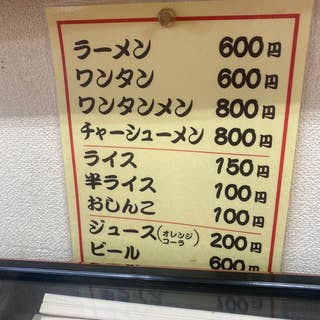 ラーメン 600円
ワンタン 600円
ワンタンメン 800円
チャーシューメン 800円
ライス 150円
半ライス 100円
おしんこ 100円
ジュース(オレンジ コーラ) 200円
ビール 600円